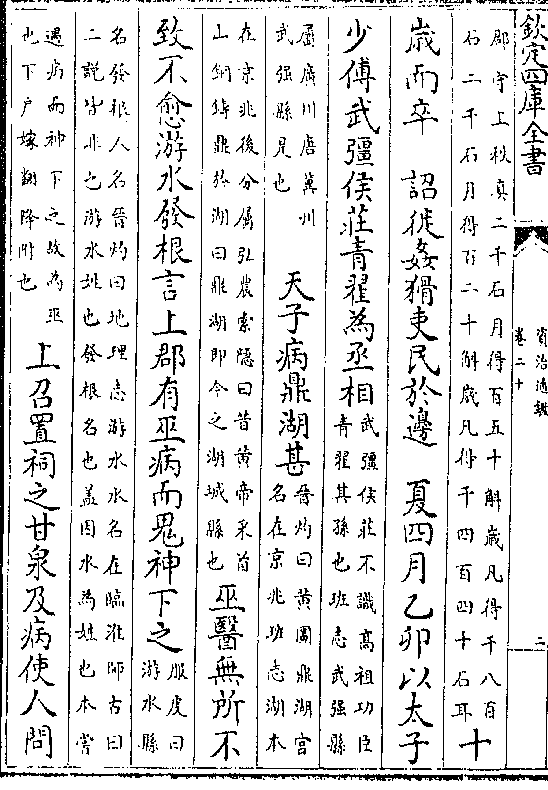 欽定四庫全書
資治通鑑
卷二十
二
郡守上秩真二千石月得百五十斛歳凡得千八百
石二千石月得百二十斛歳凡得千四百四十石耳
十
歳而卒　詔徙姦猾吏民於邊　夏四月乙卯以太子
少傅武彊侯莊青翟為丞相
武彊侯莊不識髙祖功臣
青翟其孫也班志武强縣
屬廣川唐冀州
武强縣是也
天子病鼎湖甚
晉灼曰黄圖鼎湖宫
名在京兆班志湖本
在京兆後分屬弘農索隱曰昔黄帝采首
山銅鑄鼎於湖曰鼎湖即今之湖城縣也
巫醫無所不
致不愈游水發根言上郡有巫病而鬼神下之
服䖍曰
游水縣
名發根人名晉灼曰地理志游水水名在臨淮師古曰
二說皆非也游水姓也發根名也盖因水為姓也本嘗
遇病而神下之故為巫
也下户嫁翻降附也
上召置祠之甘泉及病使人問